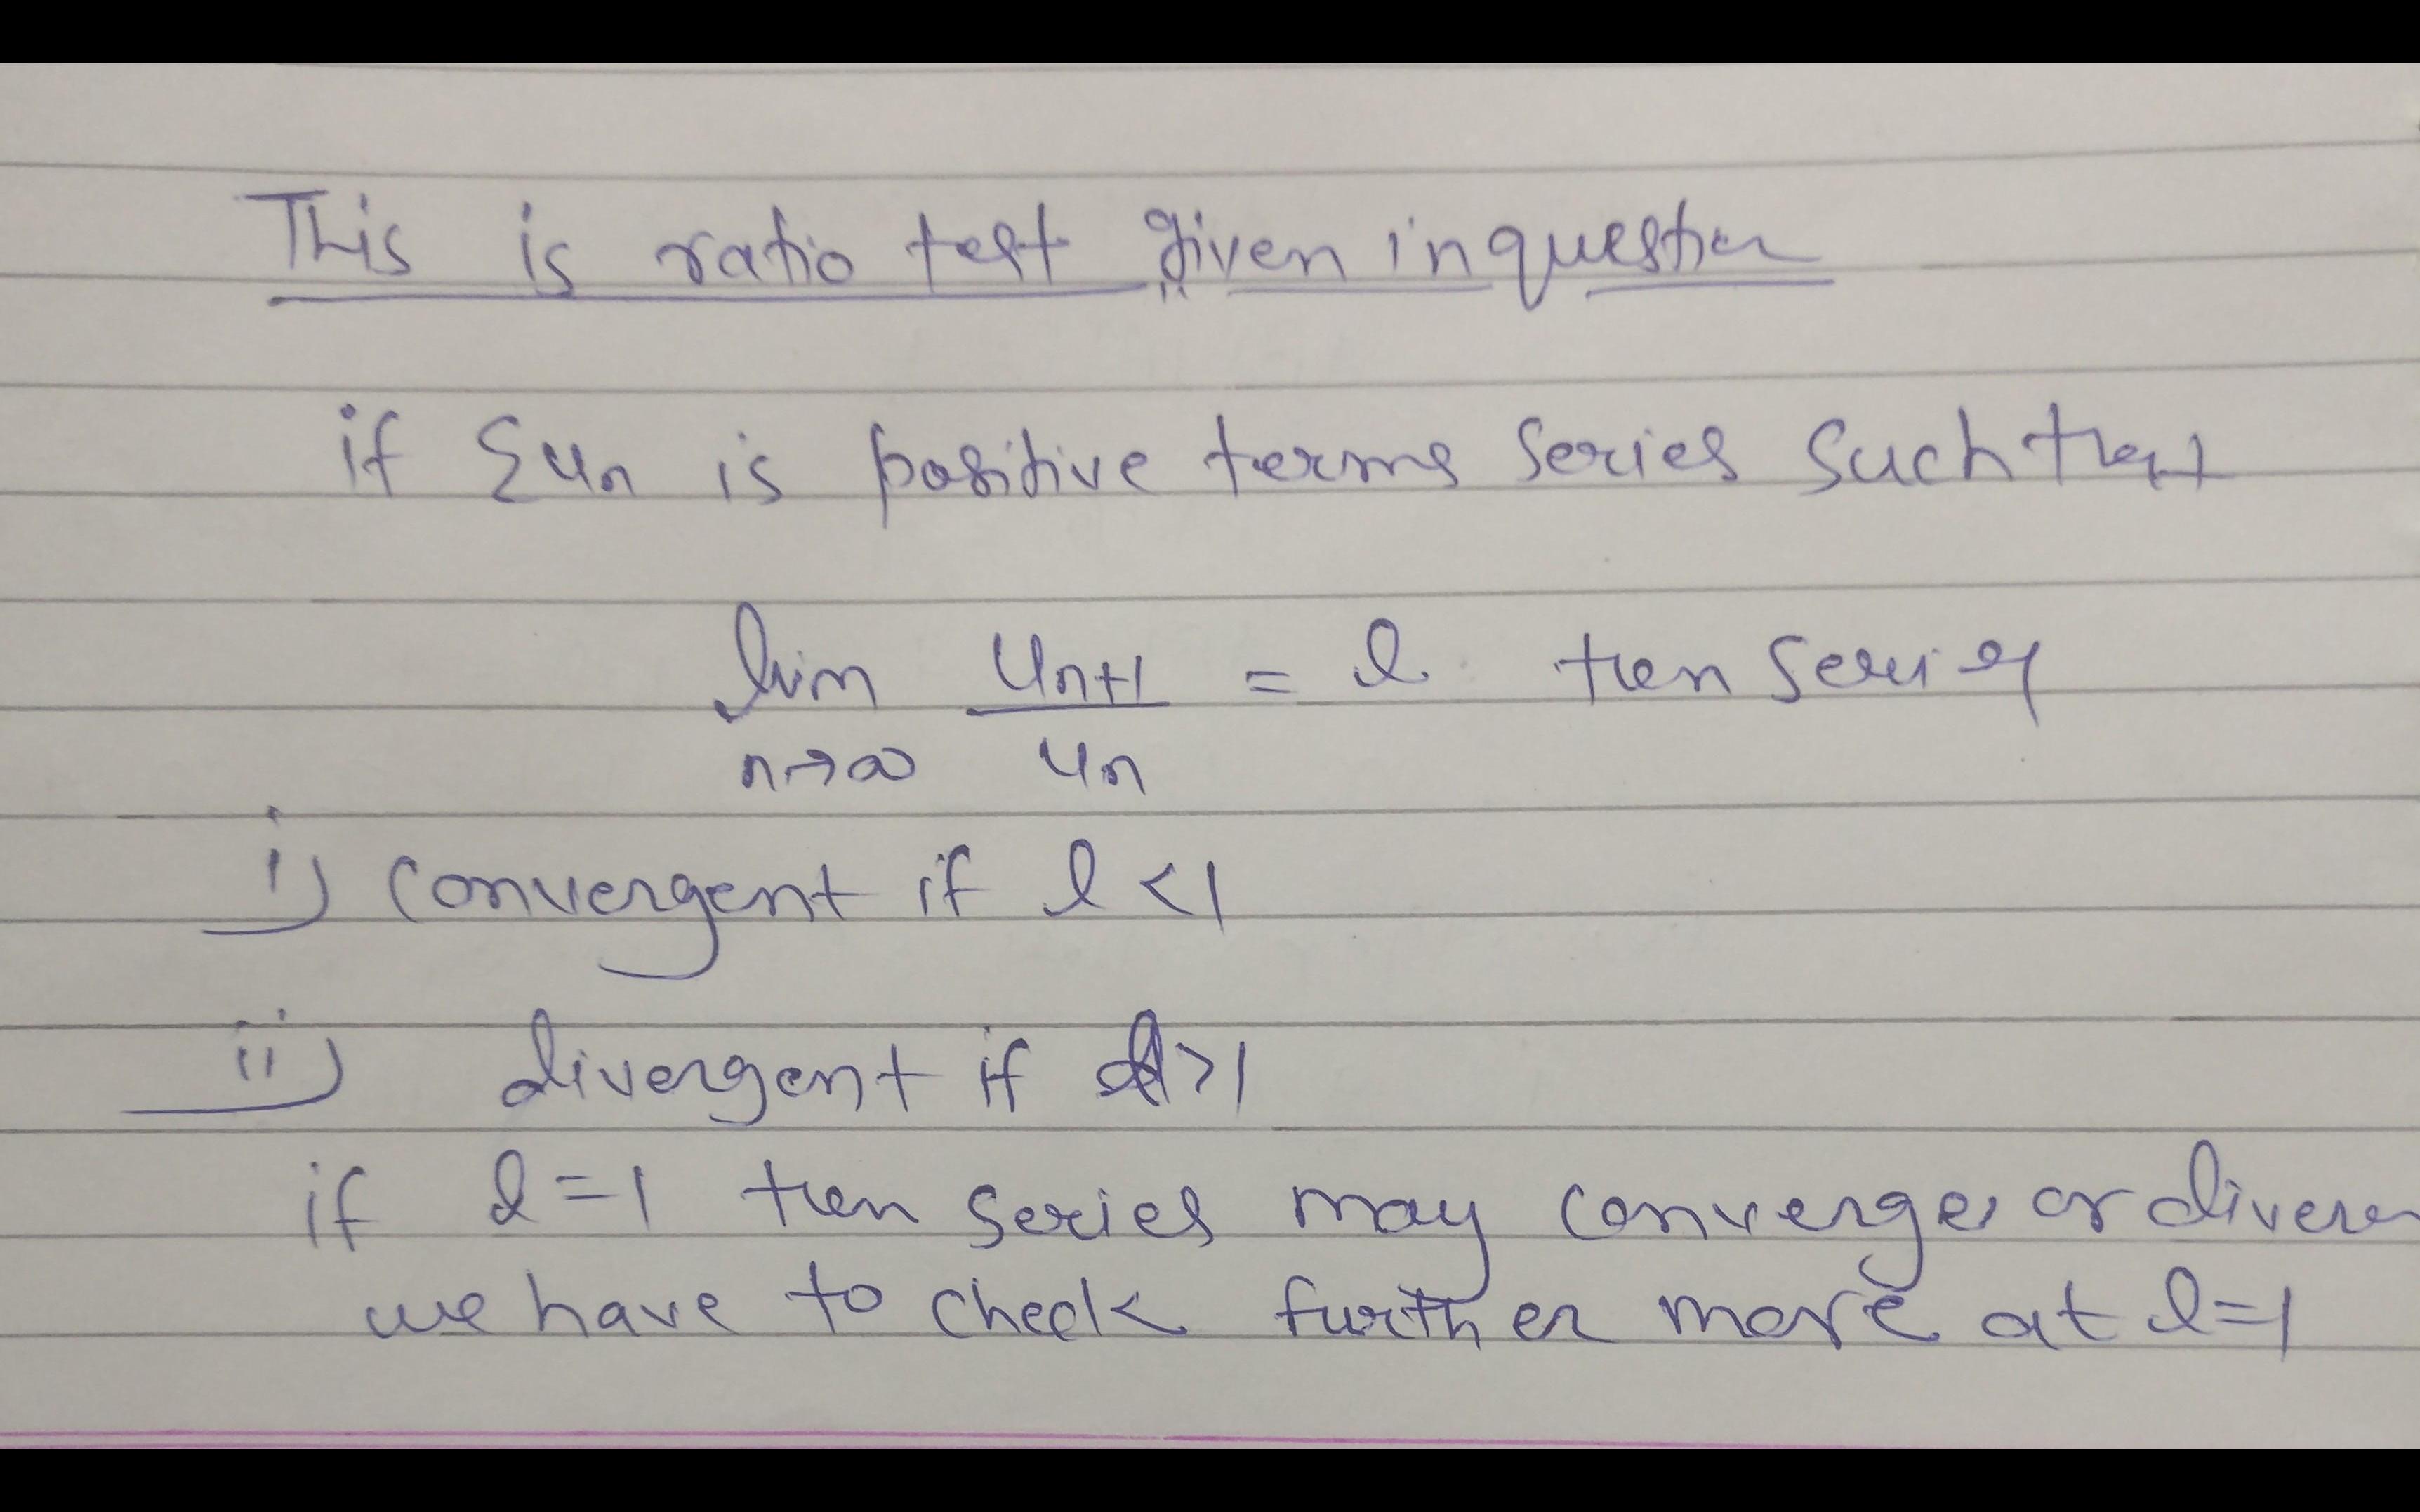 This is ratio test given in question
if Σun is positive terms series such that
lim un+1 = l then series
n→∞ un
i) convergent if l <1
ii) divergent if l>1
if l=1 then series may converge or diver
we have to check further more at l=1